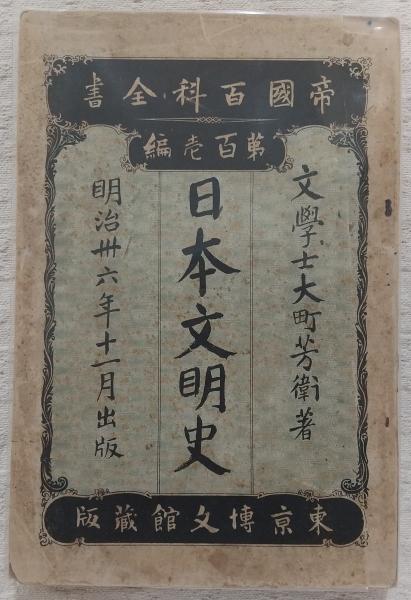 帝國百科全書
第百壱編
文學士大町芳衛著
日本文明史
明治卅六年十一月出版
東京博文館藏版